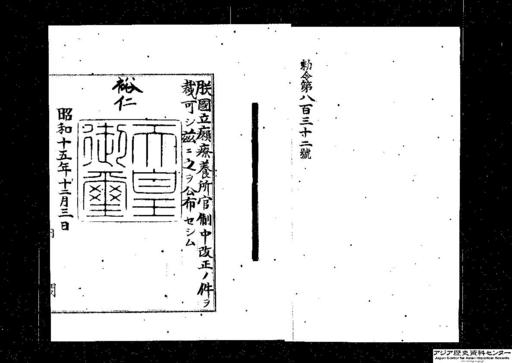 勅令第八百三十二號
朕國立癩療養所官制中改正ノ件ヲ
裁可シ茲ニ之ヲ公布セシム
裕仁
天皇
御璽
昭和十五年十二月三日
アジア歴史資料センター
Japan Center for Asian Historical Records